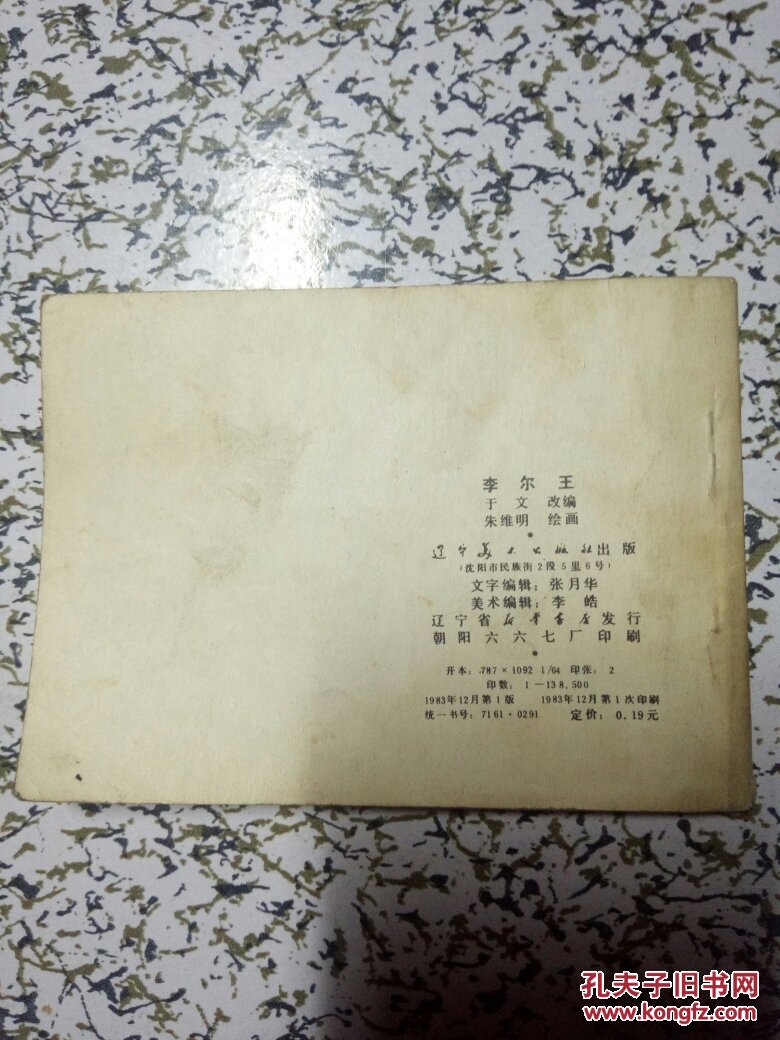 李尔王
于文 改编
朱维明 绘画
*
辽宁美术出版社出版
(沈阳市民族街2段5里6号)
文字编辑：张月华
美术编辑：李皓
辽宁省新华书店发行
朝阳六六七厂印刷
*
开本：787×1092 1/64 印张：2
印数：1—138,500
1983年12月第1版 1983年12月第1次印刷
统一书号：7161·0291 定价：0.19元
孔夫子旧书网
www.kongfz.com